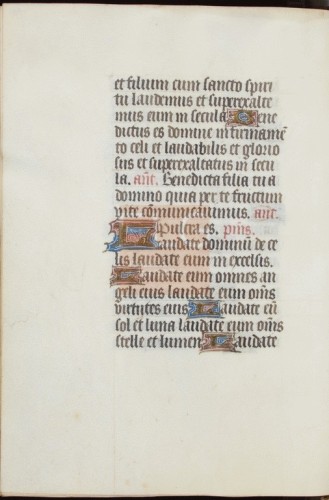 et filium cum sancto spiri
tu laudemus et superexalte
mus eum in secula Bene
dictus es domine in firmamē
to celi et laudabilis et glorio
sus et superexaltatus in secu
la. anc. Benedicta filia tu a
domino quia per te fructum
vite cōmunicauimus. anc.
pulcra es. p̄us.
Laudate dominū de ce
lis laudate eum in excelsis.
Laudate eum omnes an
geli eius laudate eum om̄s
virtutes eius Laudate eū
sol et luna laudate eum om̄s
stelle et lumen Laudate